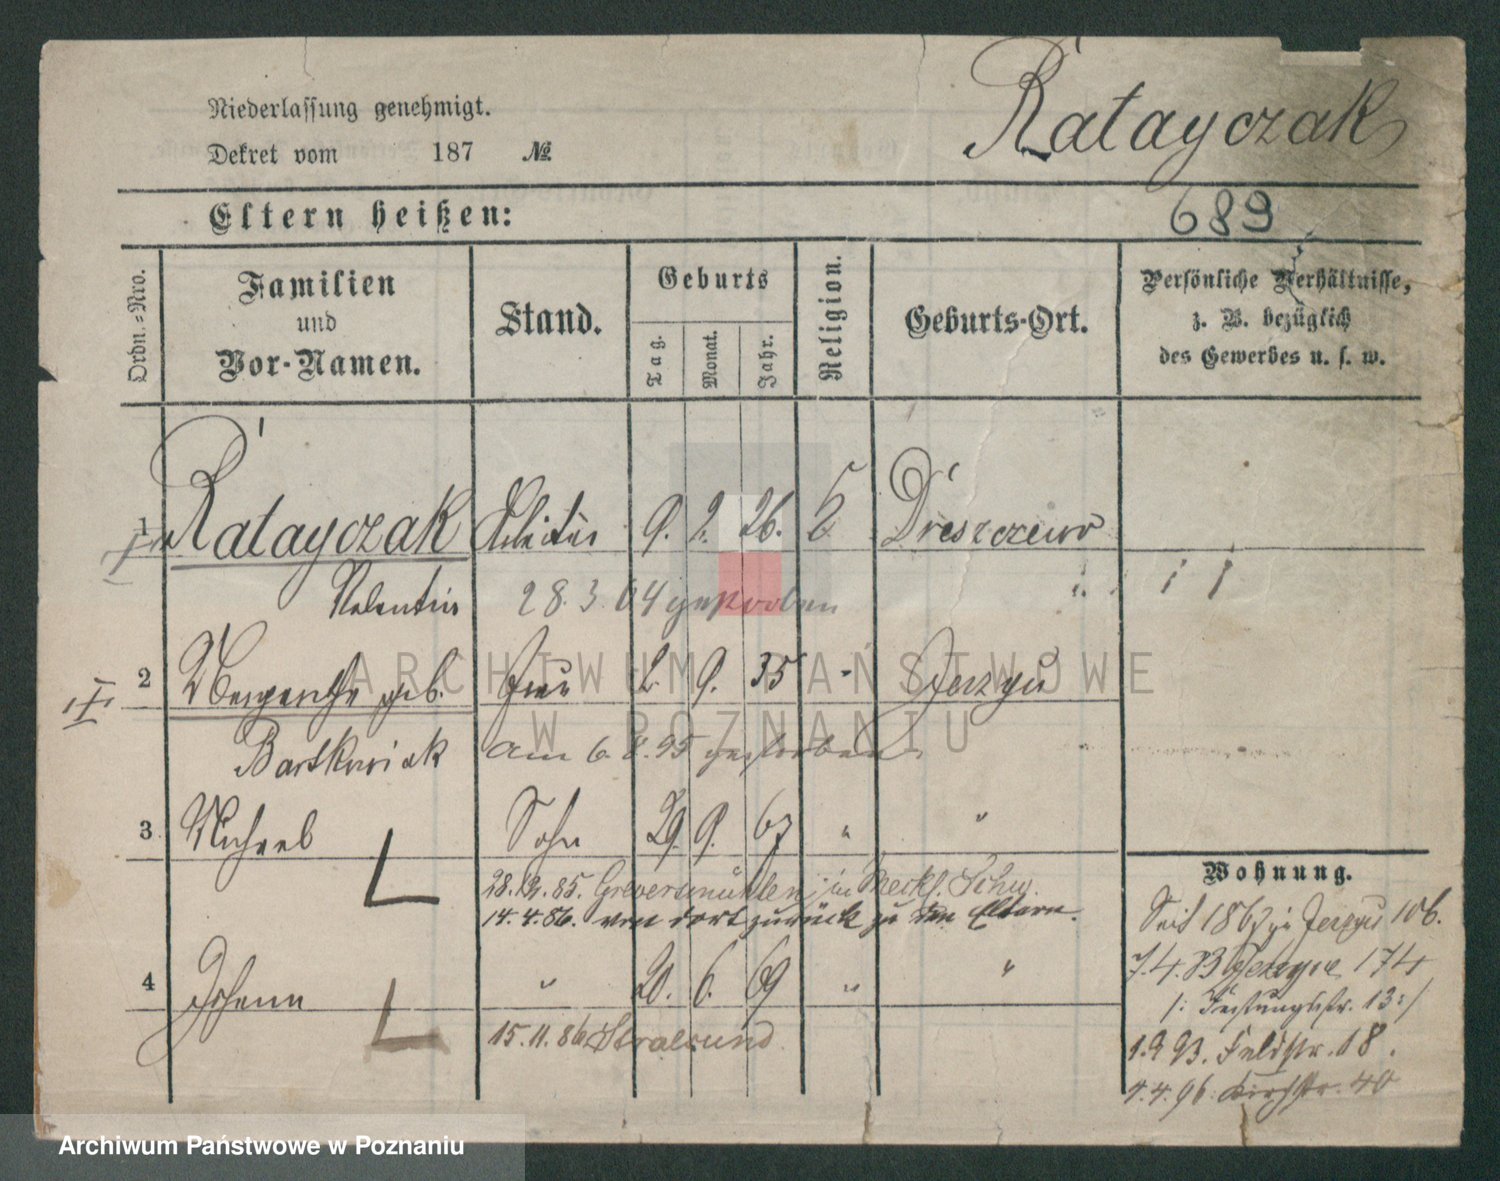 Niederlassung genehmigt.
Ratayczak
Dekret vom 187 №
689
Eltern heißen:
Ordn.-Nro.
Familien und Vor-Namen.
Stand.
Geburts
Tag.
Monat.
Jahr.
Religion.
Geburts-Ort.
Persönliche Verhältnisse,
z. B. bezüglich
des Gewerbes u. s. w.
1 Ratayczak 9. 2. 26.
Valentin 28.3.64 gestorben
2 geb. Frau 2. 9. 35 - Jerzyu
Bartkowiak am 6. 8. 95 gestorben
3 Michael Sohn 29. 9. 67 " "
28.12.85. Grevesmühlen in Meckl. Schw.
14.4.86. von dort zurück zu den Eltern.
4 Johann " 20. 6. 69 " "
15.11.86 Stralsund
Wohnung.
Seit 1867 in Jerzyu 106.
174
13:/
93. Feldstr. 18.
4.4.96. Kirchstr. 40
ARCHIWUM PAŃSTWOWE
W POZNANIU
Archiwum Państwowe w Poznaniu